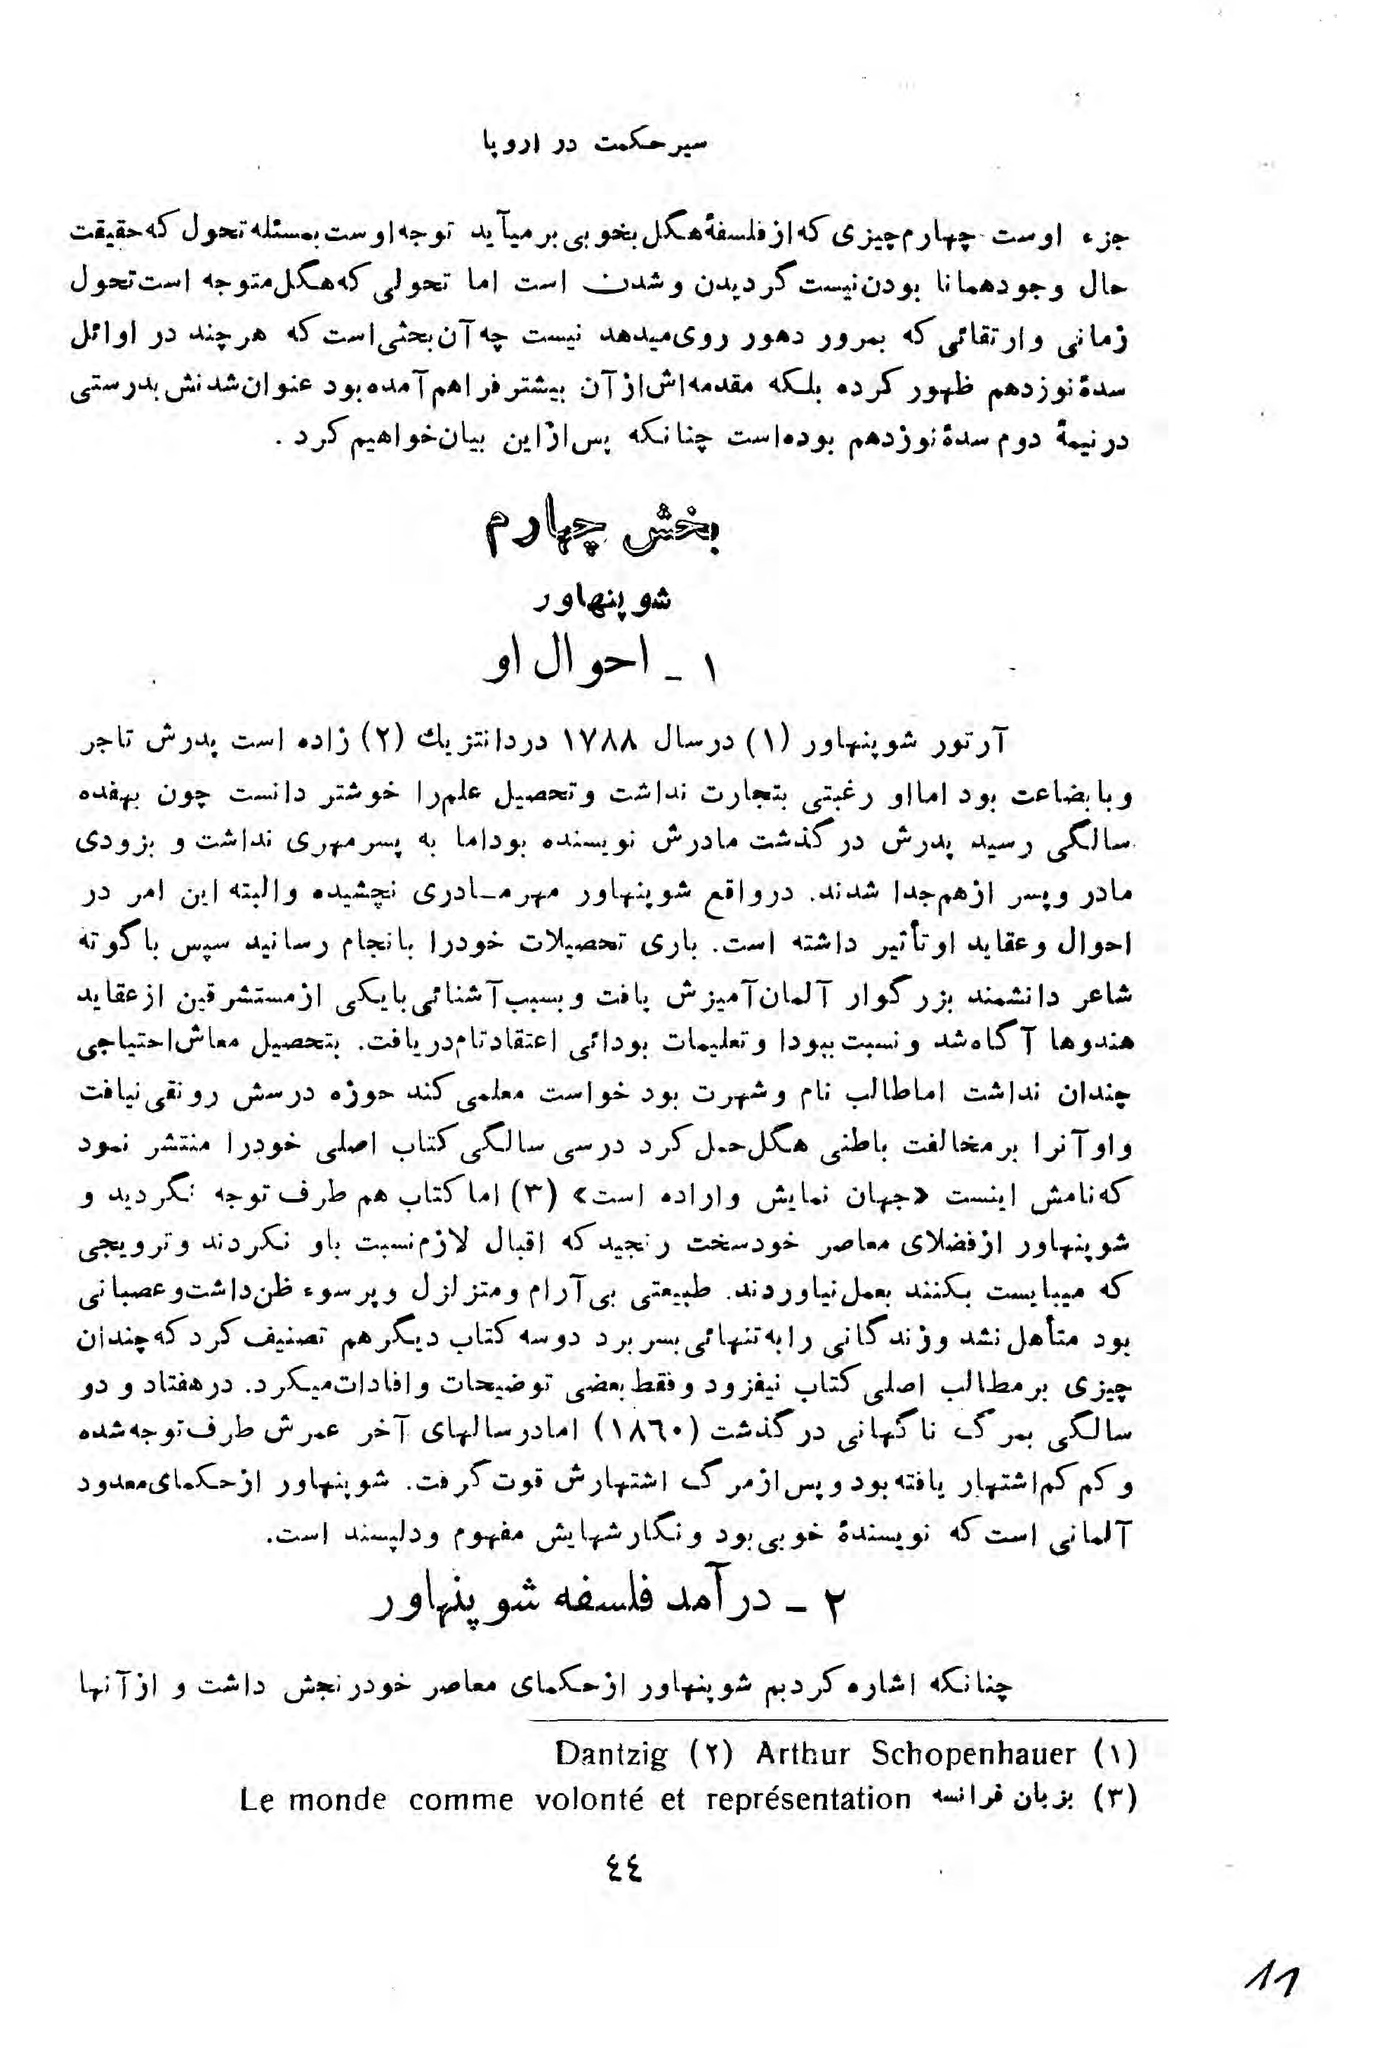 سیر حکمت در اروپا
جزء اوست چهارم چیزی که از فلسفهٔ هگل بخوبی بر میآید توجه اوست بمسئله تحول که حقیقت
حال وجود همانا بودن نیست گردیدن و شدن است اما تحولی که هگل متوجه است تحول
زمانی و ارتقائی که بمرور دهور روی میدهد نیست چه آن بحثی است که هر چند در اوائل
سدهٔ نوزدهم ظهور کرده بلکه مقدمه‌اش از آن بیشتر فراهم آمده بود عنوان شدنش بدرستی
در نیمهٔ دوم سدهٔ نوزدهم بوده است چنانکه پس از این بیان خواهیم کرد .
بخش چهارم
شوپنهاور
۱ ـ احوال او
آرتور شوپنهاور (۱) در سال ۱۷۸۸ در دانتزیك (۲) زاده است پدرش تاجر
و با بضاعت بود اما او رغبتی بتجارت نداشت و تحصیل علم را خوشتر دانست چون بهفده
سالگی رسید پدرش در گذشت مادرش نویسنده بود اما به پسر مهری نداشت و بزودی
مادر و پسر از هم جدا شدند. در واقع شوپنهاور مهر مادری نچشیده و البته این امر در
احوال و عقاید او تأثیر داشته است. باری تحصیلات خود را بانجام رسانید سپس با گوته
شاعر دانشمند بزرگوار آلمان آمیزش یافت و بسبب آشنائی با یکی از مستشرقین از عقاید
هندوها آگاه شد و نسبت ببودا و تعلیمات بودائی اعتقاد تام دریافت. بتحصیل معاش احتیاجی
چندان نداشت اما طالب نام و شهرت بود خواست معلمی کند حوزه درسش رونقی نیافت
و او آنرا بر مخالفت باطنی هگل حمل کرد در سی سالگی کتاب اصلی خود را منتشر نمود
که نامش اینست «جهان نمایش و اراده است» (۳) اما کتاب هم طرف توجه نگردید و
شوپنهاور از فضلای معاصر خود سخت رنجید که اقبال لازم نسبت باو نکردند و ترویجی
که میبایست بکنند بعمل نیاوردند. طبیعتی بی‌آرام و متزلزل و پر سوء ظن داشت و عصبانی
بود متأهل نشد و زندگانی را به تنهائی بسر برد دو سه کتاب دیگر هم تصنیف کرد که چندان
چیزی بر مطالب اصلی کتاب نیفزود و فقط بعضی توضیحات و افادات میکرد. در هفتاد و دو
سالگی بمرگ ناگهانی در گذشت (۱۸٦۰) اما در سالهای آخر عمرش طرف توجه شده
و کم کم اشتهار یافته بود و پس از مرگ اشتهارش قوت گرفت. شوپنهاور از حکمای معدود
آلمانی است که نویسندهٔ خوبی بود و نگارشهایش مفهوم و دلپسند است.
۲ ـ درآمد فلسفه شوپنهاور
چنانکه اشاره کردیم شوپنهاور از حکمای معاصر خود رنجش داشت و از آنها
(۱) Arthur Schopenhauer (۲) Dantzig
(۳) بزبان فرانسه Le monde comme volonté et représentation
٤٤
11